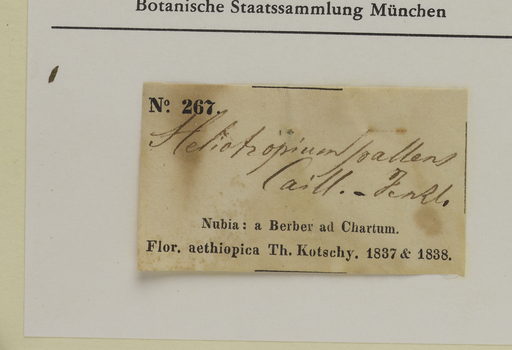 Botanische Staatssammlung München
No. 267.
Heliotropium pallens
Caill. - Fenzl.
Nubia: a Berber ad Chartum.
Flor. aethiopica Th. Kotschy. 1837 & 1838.